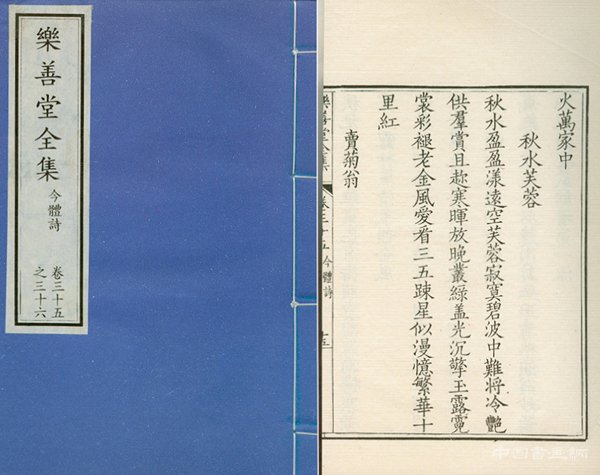 樂善堂全集
今體詩
卷三十五
之三十六
火萬家中
秋水芙蓉
秋水盈盈漾遠空芙蓉寂寞碧波中難將冷艷
供羣賞且趂寒暉放晚叢綠盖光沉擎玉露霓
裳彩褪老金風愛看三五疎星似漫憶繁華十
里紅
賣菊翁
樂善堂全集
卷三十五今體詩
十五
中国书画网